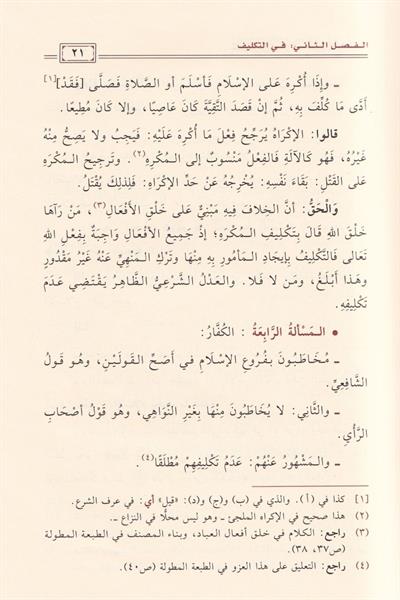 الـفـصـل الـثـانـي: فـي التكليف
٢١
ـ وإِذَا أُكْرِهَ عَـلـى الإِسْلَامِ فَـأَسْـلَـمَ أو الصَّلَاةِ فَـصَـلَّـى [فَـقَـدْ][١]
أَدَّى مَا كُلِّفَ بِهِ، ثُمَّ إنْ قَصَدَ التَّقِيَّةَ كَانَ عَاصِيًا، وإلا كَانَ مُطِيعًا.
قالوا: الإكْرَاهُ يُرَجِّحُ فِعْلَ مَا أُكْرِهَ عَلَيْهِ: فَيَجِبُ ولا يَصِحُّ مِنْهُ
غَيْرُهُ، فَهُو كَالآلَةِ فَالفِعْلُ مَنْسُوبٌ إلى المُكْرِهِ(٢). وتَرجِيحُ المُكْرَهِ
على القَتْلِ: بَقَاءَ نَفْسِهِ: يُخْرِجُهُ عَنْ حَدِّ الإكْرَاهِ: فَلِذلِكَ يُقْتَلُ.
وَالْحَقُّ: أنَّ الخِلافَ فِيهِ مَبْنِيٌّ عَلى خَلْقِ الأَفْعَالِ(٣)، مَنْ رَآهَا
خَلْقَ اللهِ قَالَ بِتَكْلِيفِ المُكْرَهِ؛ إذْ جَمِيعُ الأَفْعَالِ وَاجِبَةٌ بِفِعْلِ اللهِ
تَعالى فَالتَّكْلِيفُ بِإيجَادِ المَأمُورِ بِهِ مِنْهَا وتَرْكِ المَنْهِيِّ عَنْهُ غَيْرُ مَقْدُورٍ
وهَـذا أَبْـلَـغُ، ومَـن لا فَـلا. والعَدْلُ الشَّرْعِيُّ الظَّاهِرُ يَقْتَضِي عَدَمَ
تَكْلِيفِهِ.
• الـمَـسْـألـةُ الـرَّابِـعَـةُ : الكُفَّارُ:
ـ مُـخَـاطَبُـونَ بِـفُـرُوعِ الإسْلَامِ فـي أَصَـحِّ القَـولَـيْنِ، وهـو قَـولُ
الشَّافِعِيِّ.
ـ والـثَّانِي: لا يُخَاطَبُونَ مِنْهَا بِغَيْرِ النَّوَاهِي، وهو قَوْلُ أصْحَابِ
الرَّأْيِ.
ـ والـمَـشْهُورُ عَنْهُمْ: عَدَمُ تَكْلِيفِهِمْ مُطْلَقًا(٤).
[١] كذا في (أ). والذي في (ب) و(ج) و(د): «قيل» أي: في عرف الشرع.
(٢) هذا صحيح في الإكراه الملجئ ـ وهو ليس محلًّا في النزاع ـ.
(٣) راجع: الكلام في خلق أفعال العباد، وبناء المصنف في الطبعة المطولة
(ص٣٧، ٣٨).
(٤) راجع: التعليق على هذا العزو في الطبعة المطولة (ص٤٠).